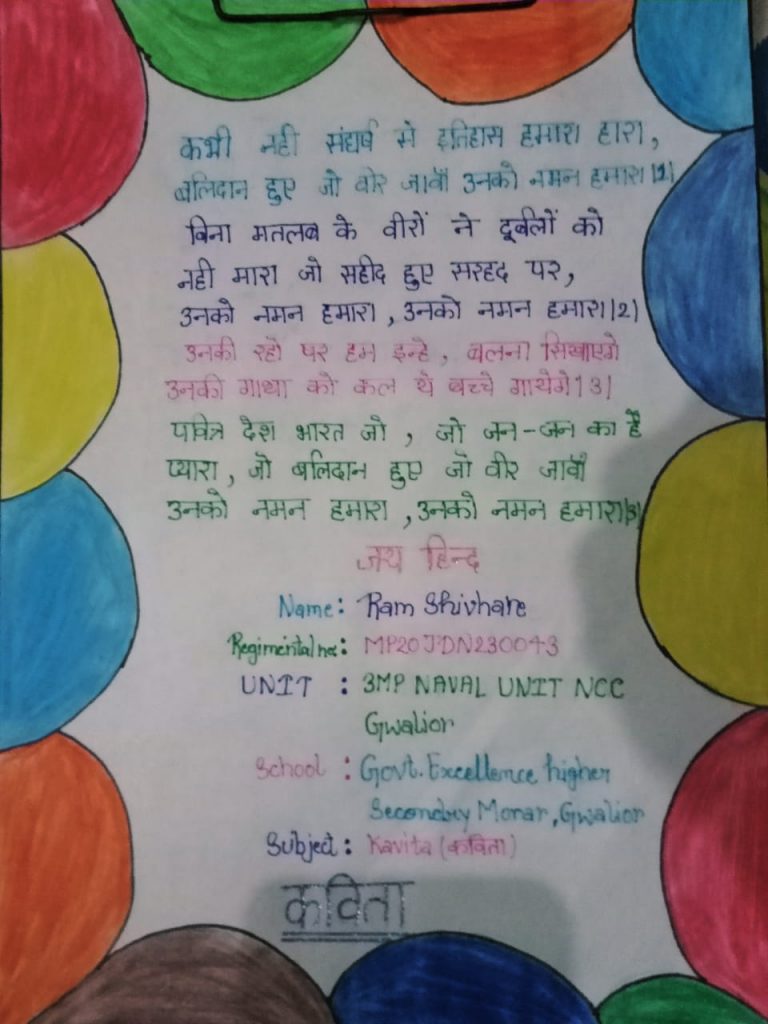 कभी नही संघर्ष से इतिहास हमारा हारा,
बलिदान हुए जो वीर जावाँ उनको नमन हमारा।1।
बिना मतलब के वीरों ने दूर्बलों को
नही मारा जो सहीद हुए सरहद पर,
उनको नमन हमारा, उनको नमन हमारा।2।
उनकी रहो पर हम इन्हे, चलना सिखाएगे
उनकी गाथा को कल ये बच्चे गायेगे।3।
पवित्र देश भारत जो, जो जन-जन का है
प्यारा, जो बलिदान हुए जो वीर जावाँ
उनको नमन हमारा, उनको नमन हमारा।3।
जय हिन्द
Name: Ram Shivhare
Regimental no: MP20JDN230043
UNIT : 3MP NAVAL UNIT NCC
Gwalior
School : Govt. Excellence higher
Secondry Morar, Gwalior
Subject: Kavita (कविता)
कविता